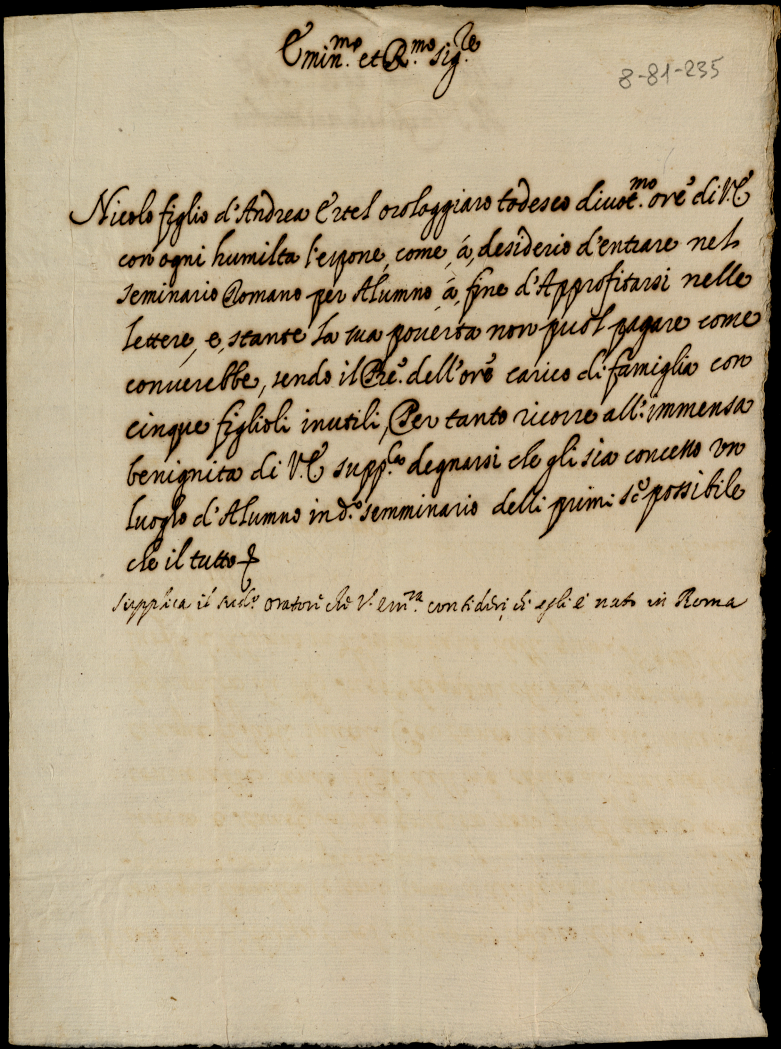 Emin.mo et R.mo Sig.re
8-81-235
Nicolo figlio d'Andrea Ertel orologgiaro todesco divot.mo ore di V.E
con ogni humilta l'espone, come, á, desiderio d'entrare nel
seminario Romano per Alumno, á, fine d'Approfitarsi nelle
lettere, e, stante la sua poverta non puol pagare come
converebbe, sendo il Pre. dell'ore carico di famiglia con
cinque figlioli inutili, Per tanto ricorre all'immensa
benignita di V.E supp.do degnarsi che gli sia concesso un
luogho d'Alumno in d.o semminario delli primi sé possibile
che il tutto
supplica il sud.o oratore che V. Em.za consideri, ch egli é nato in Roma